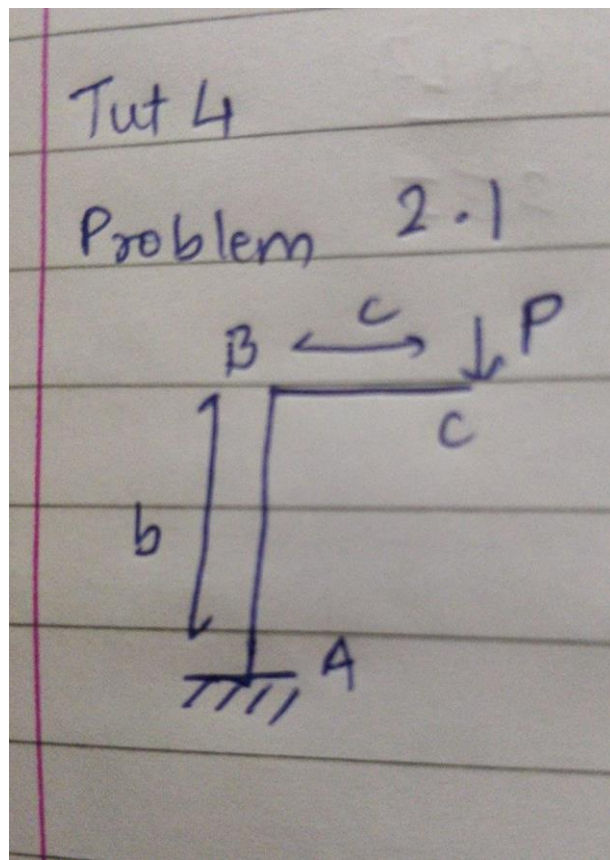 Tut 4
Problem 2.1
B c P
C
b
A